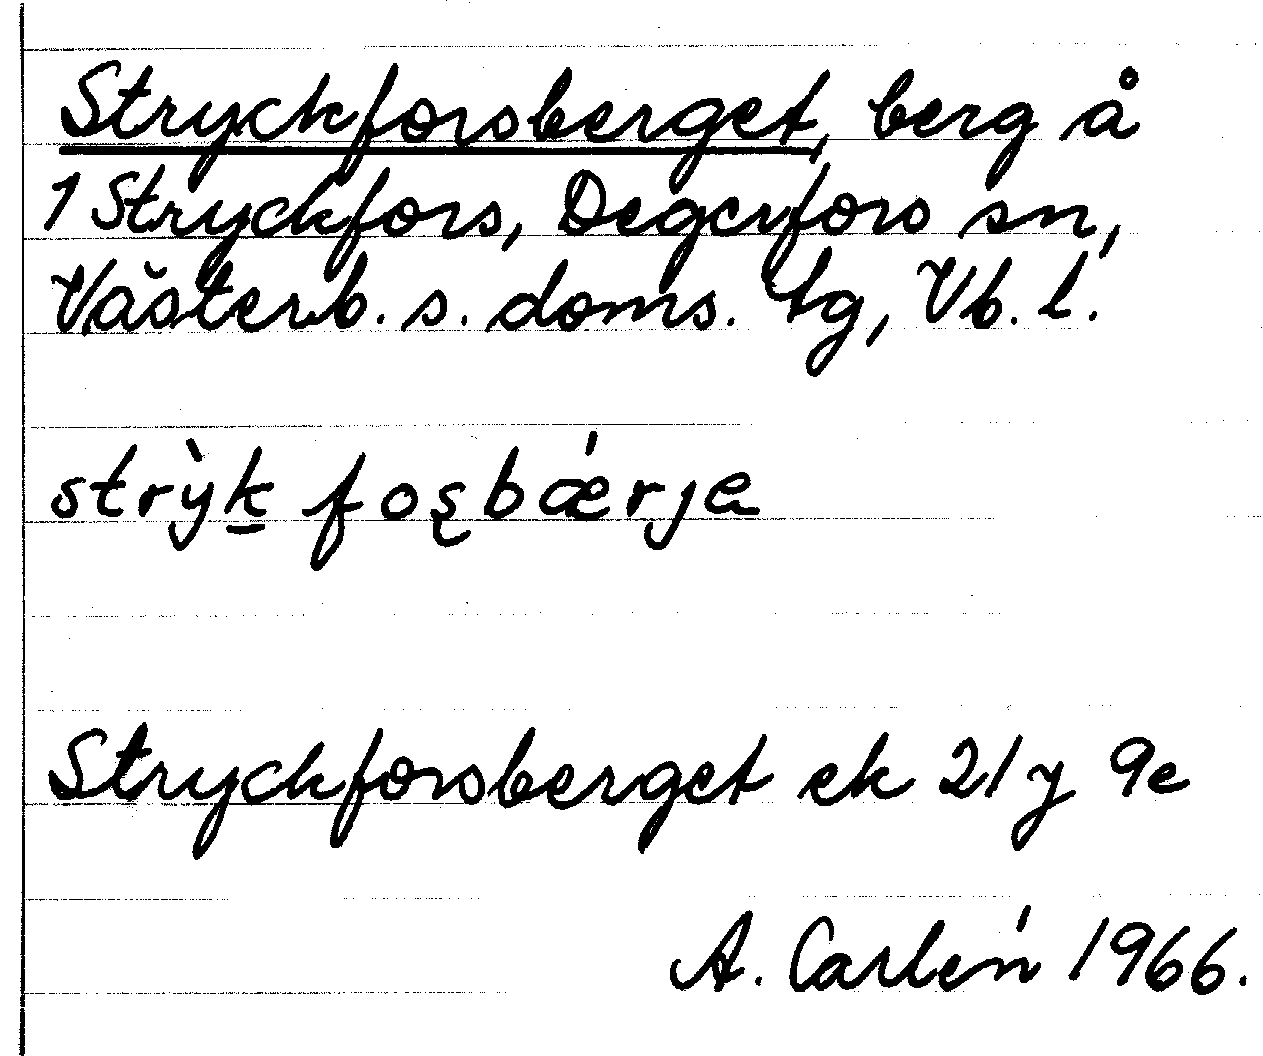 Stryckforsberget, berg å
1 Stryckfors, Degerfors sn,
Västerb. s. doms. tg, Vb. l.
strỳk̲ fos̨bǽrja
Stryckforsberget ek 21 y 9e
A. Carlén 1966.